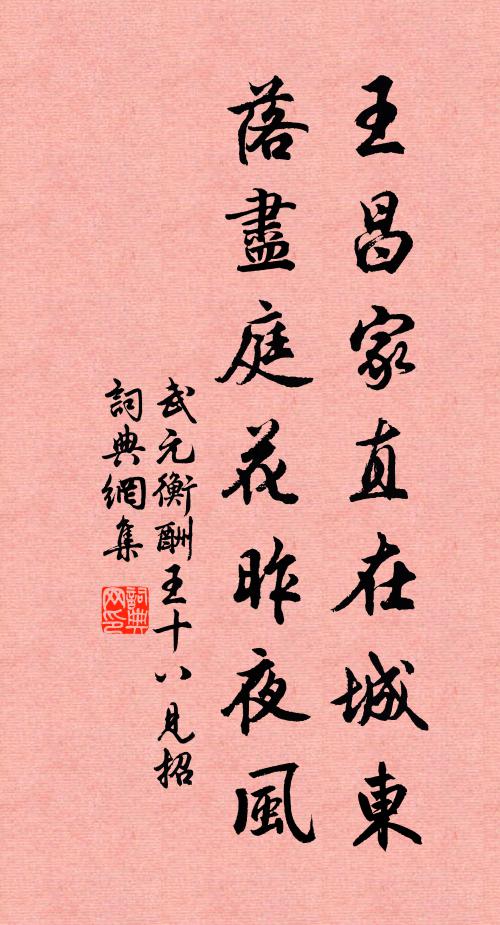 王昌家直在城東
落盡庭花昨夜風
武元衡酬王十八見招
詞典網集
詞典网印